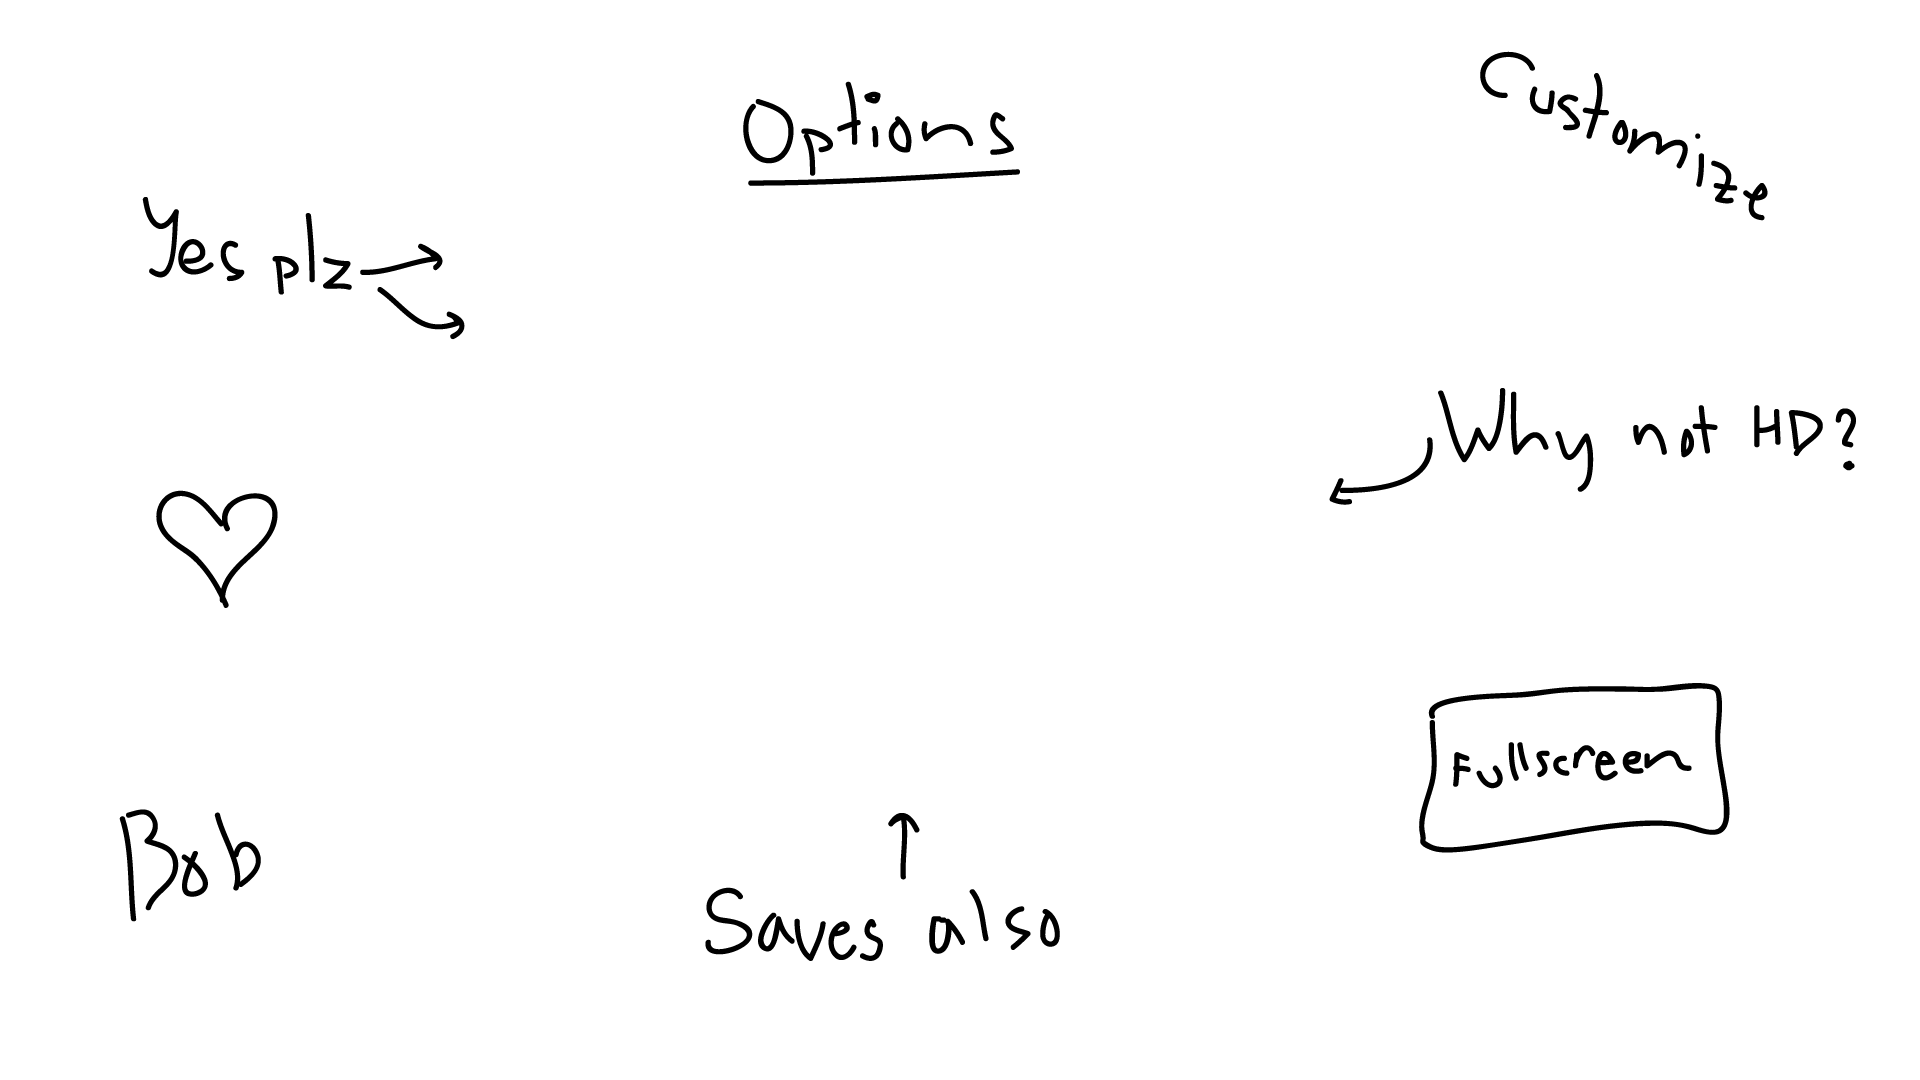 Options
Customize
Yes plz
Why not HD?
Fullscreen
Bob
Saves also